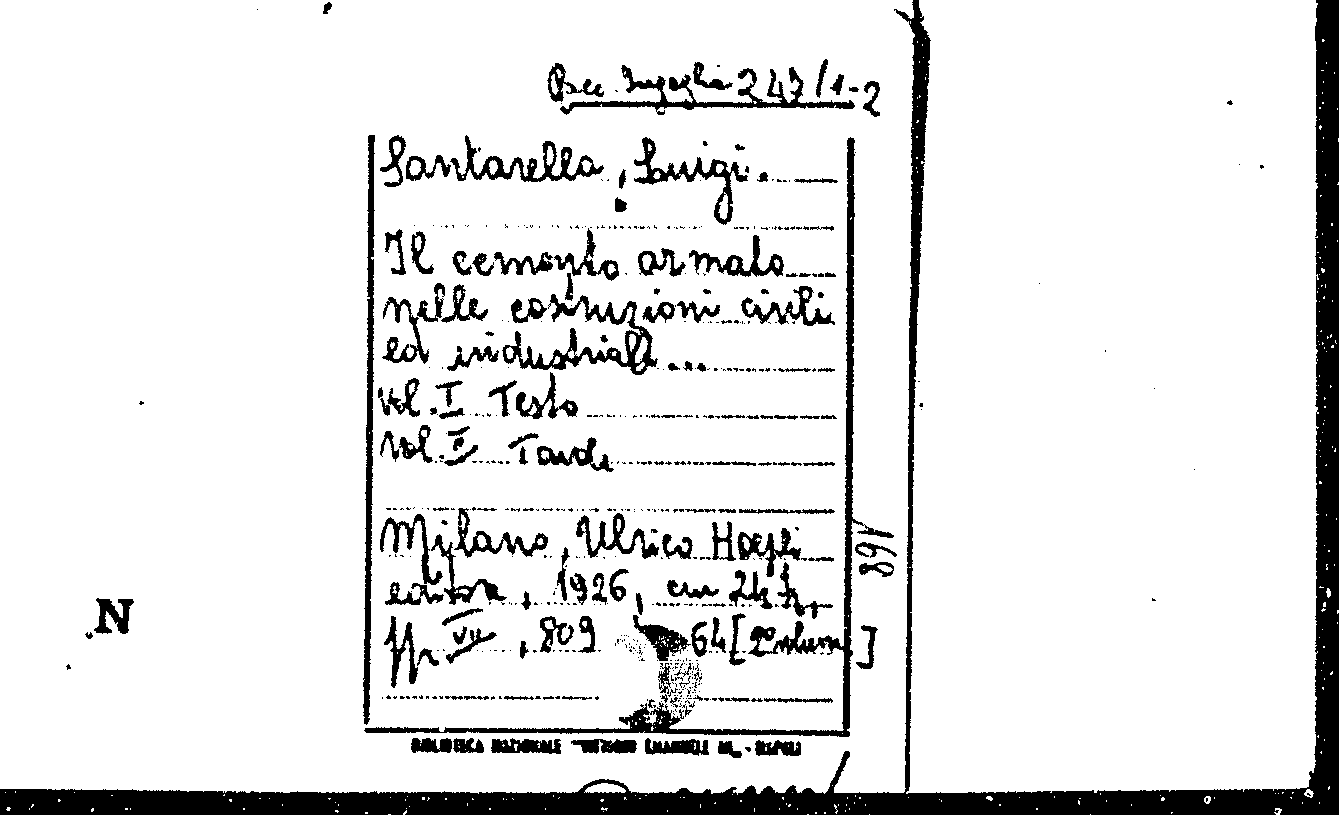 247/1-2
Santarella, Luigi.
Il cemento armato
nelle costruzioni civili
ed industriali...
vol. I Testo
vol. II Tavole
Milano, Ulrico Hoepli
editore, 1926, cm
pp. VII, 809 64 [2º volume]
168
N
BIBLIOTECA NAZIONALE "VITTORIO EMANUELE III" - NAPOLI